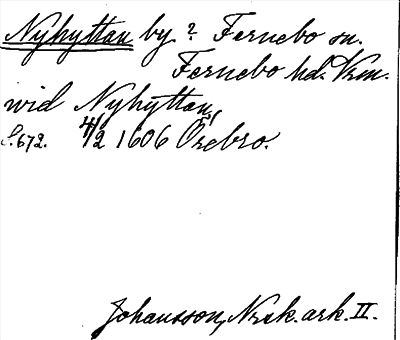 Nyhyttan by? Fernebo sn.
Fernebo hd. Vrm.
wid Nyhyttan,
S. 672. 4/2 1606 Örebro.
Johansson, Nrek. ark. II.